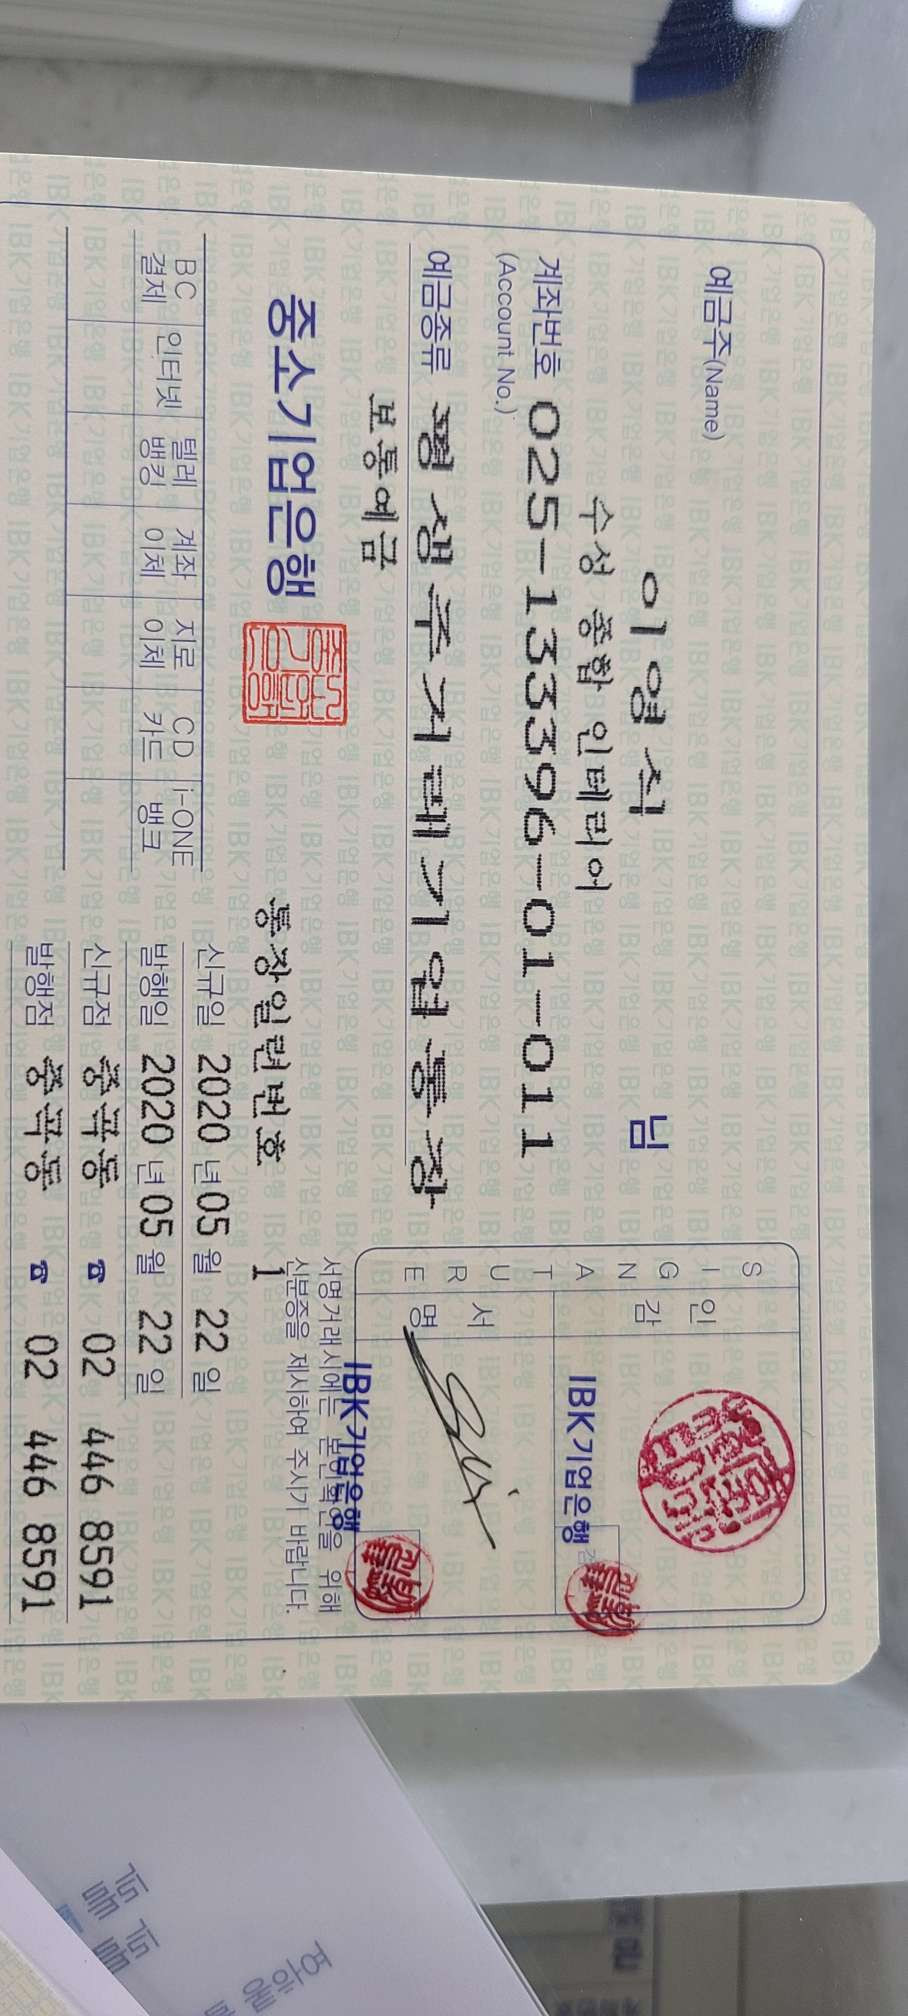 예금주(Name)
이영식 님
수성 종합 인테리어
계좌번호 025-133396-01-011
(Account No.)
예금종류 평생주거래기업통장
보통예금
중소기업은행
통장일련번호 1
SIGNATURE
인감
서명
IBK기업은행
IBK기업은행
서명거래시에는 본인확인을 위해
신분증을 제시하여 주시기 바랍니다.
BC결제 인터넷 텔레뱅킹 계좌이체 지로이체 CD카드 i-ONE뱅크
신규일 2020년 05월 22일
발행일 2020년 05월 22일
신규점 중곡동 ☎ 02 446 8591
발행점 중곡동 ☎ 02 446 8591